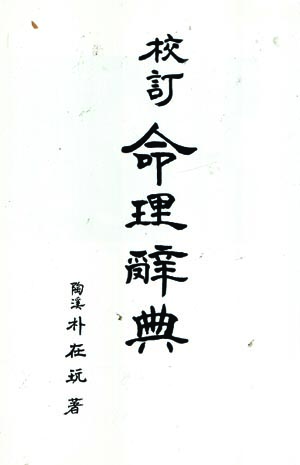 校訂
命理辭典
陶溪 朴在玩 著